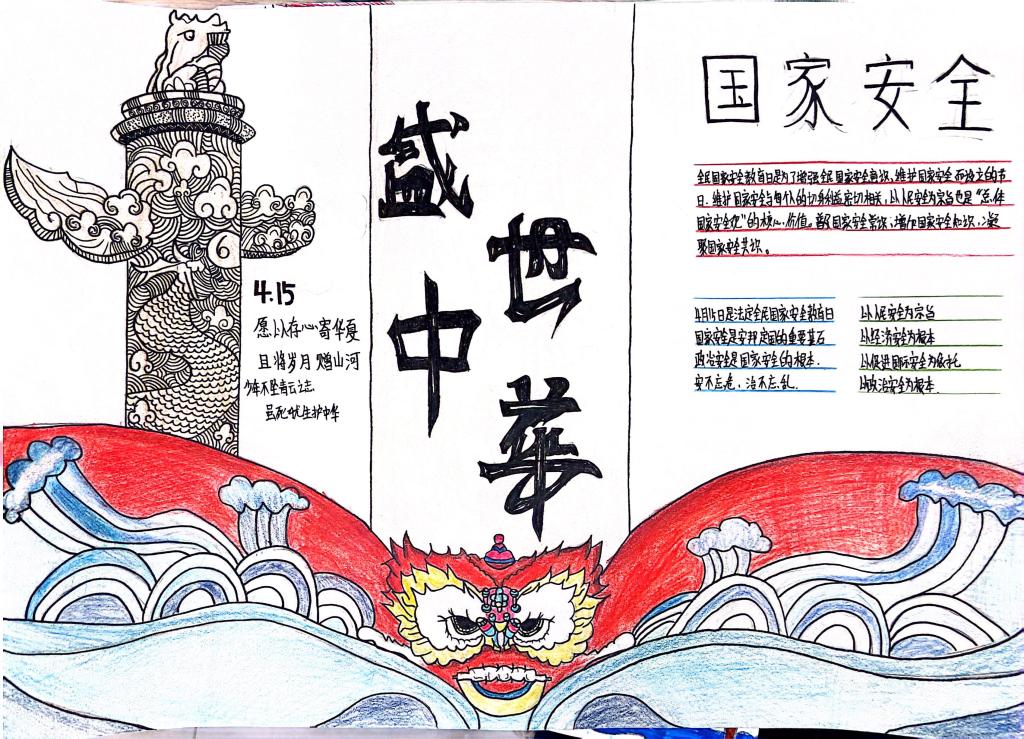 盛世
中華
国家安全
全民国家安全教育日是为了增强全民国家安全意识,维护国家安全而设立的节
日.维护国家安全与每个人的切身利益密切相关,以人民安全为宗旨也是“总体
国家安全观”的核心价值。普及国家安全常识,增加国家安全知识,凝
聚国家安全共识。
4.15
愿以存心寄华夏
且将岁月赠山河
少年不坠青云之志
虽死犹生护中华
4月15日是法定全民国家安全教育日
国家安全是安邦定国的重要基石
政治安全是国家安全的根本.
安不忘危,治不忘乱.
以人民安全为宗旨
以经济安全为根本
以促进国际安全为依托
以政治安全为根本.